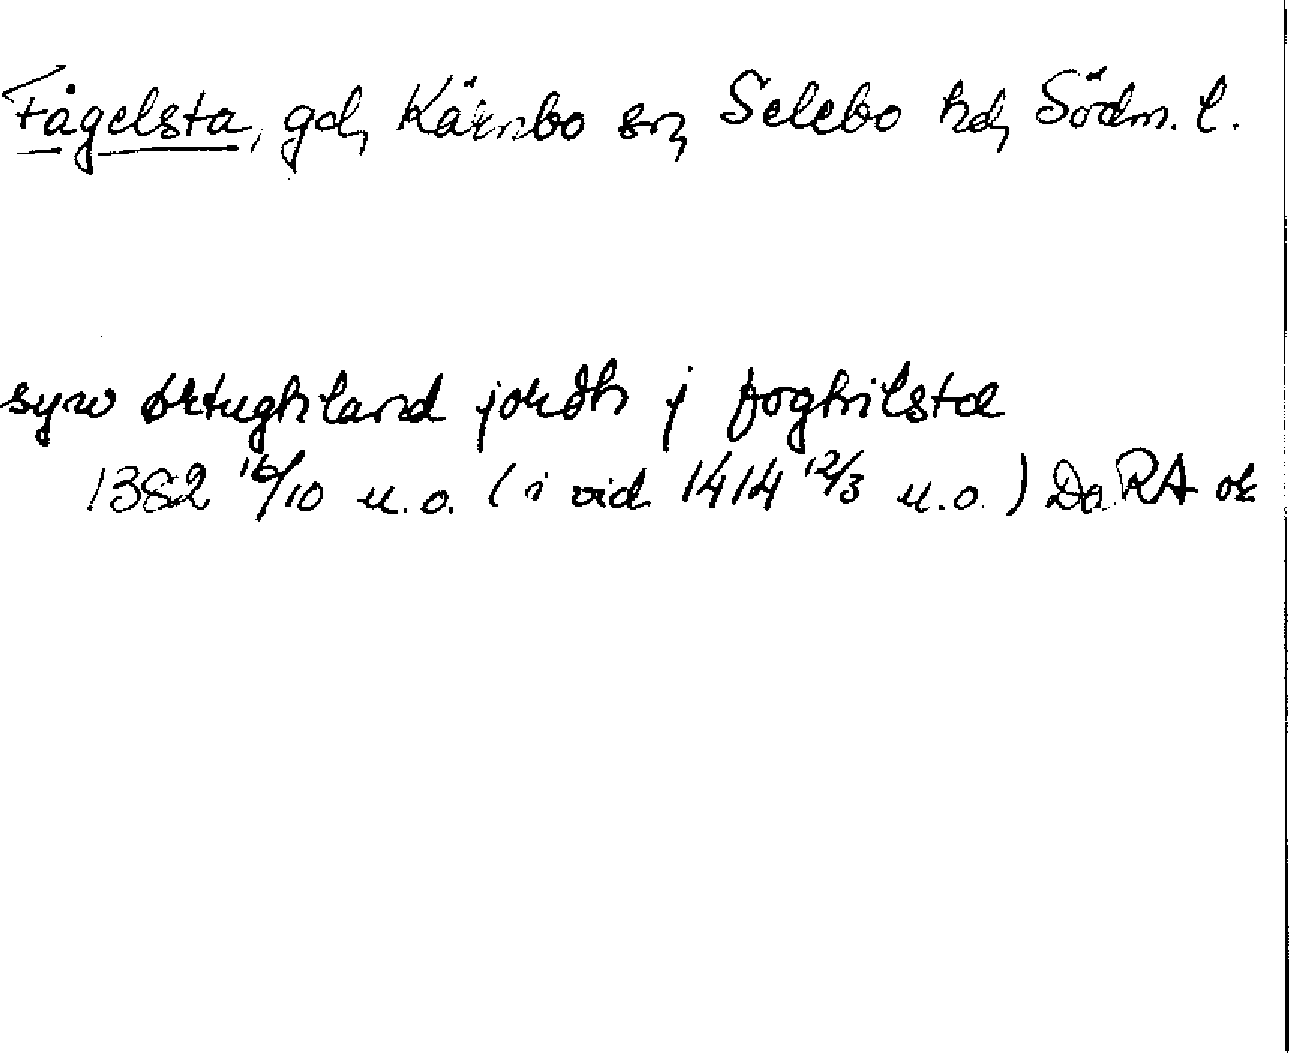 Fågelsta, gd, Kärnbo sn, Selebo hd, Södm. l.
syw ørtughland jordh j foghilsta
1382 16/10 u.o. (i vid. 1414 12/3 u.o.) Da. RA or.